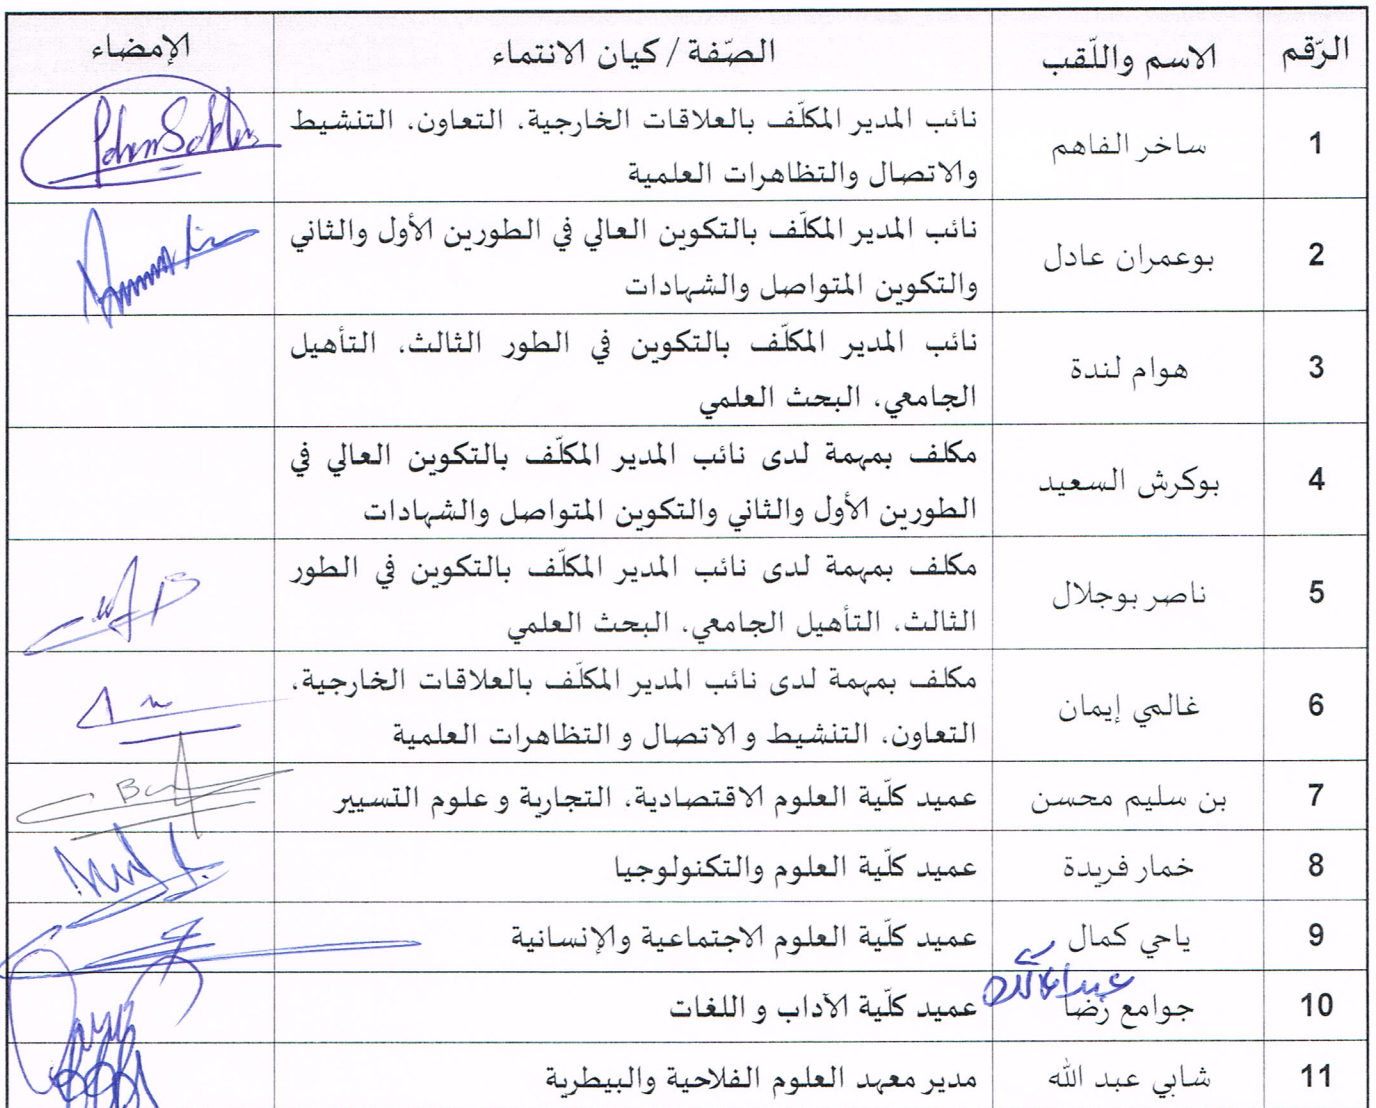 الرّقم الاسم واللّقب الصّفة / كيان الانتماء الإمضاء
1 ساخر الفاهم نائب المدير المكلّف بالعلاقات الخارجية، التعاون، التنشيط
والاتصال والتظاهرات العلمية
2 بوعمران عادل نائب المدير المكلّف بالتكوين العالي في الطورين الأول والثاني
والتكوين المتواصل والشهادات
3 هوام لندة نائب المدير المكلّف بالتكوين في الطور الثالث، التأهيل
الجامعي، البحث العلمي
4 بوكرش السعيد مكلف بمهمة لدى نائب المدير المكلّف بالتكوين العالي في
الطورين الأول والثاني والتكوين المتواصل والشهادات
5 ناصر بوجلال مكلف بمهمة لدى نائب المدير المكلّف بالتكوين في الطور
الثالث، التأهيل الجامعي، البحث العلمي
6 غالمي إيمان مكلف بمهمة لدى نائب المدير المكلّف بالعلاقات الخارجية،
التعاون، التنشيط و الاتصال و التظاهرات العلمية
7 بن سليم محسن عميد كلّية العلوم الاقتصادية، التجارية و علوم التسيير
8 خمار فريدة عميد كلّية العلوم والتكنولوجيا
9 ياحي كمال عميد كلّية العلوم الاجتماعية والإنسانية
10 جوامع رضا عميد كلّية الآداب و اللغات
11 شابي عبد الله مدير معهد العلوم الفلاحية والبيطرية